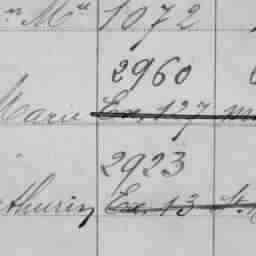 Mᵉˡ 1072
2960
Marie Ex. 127
2923
thurin Ex. 13 St.